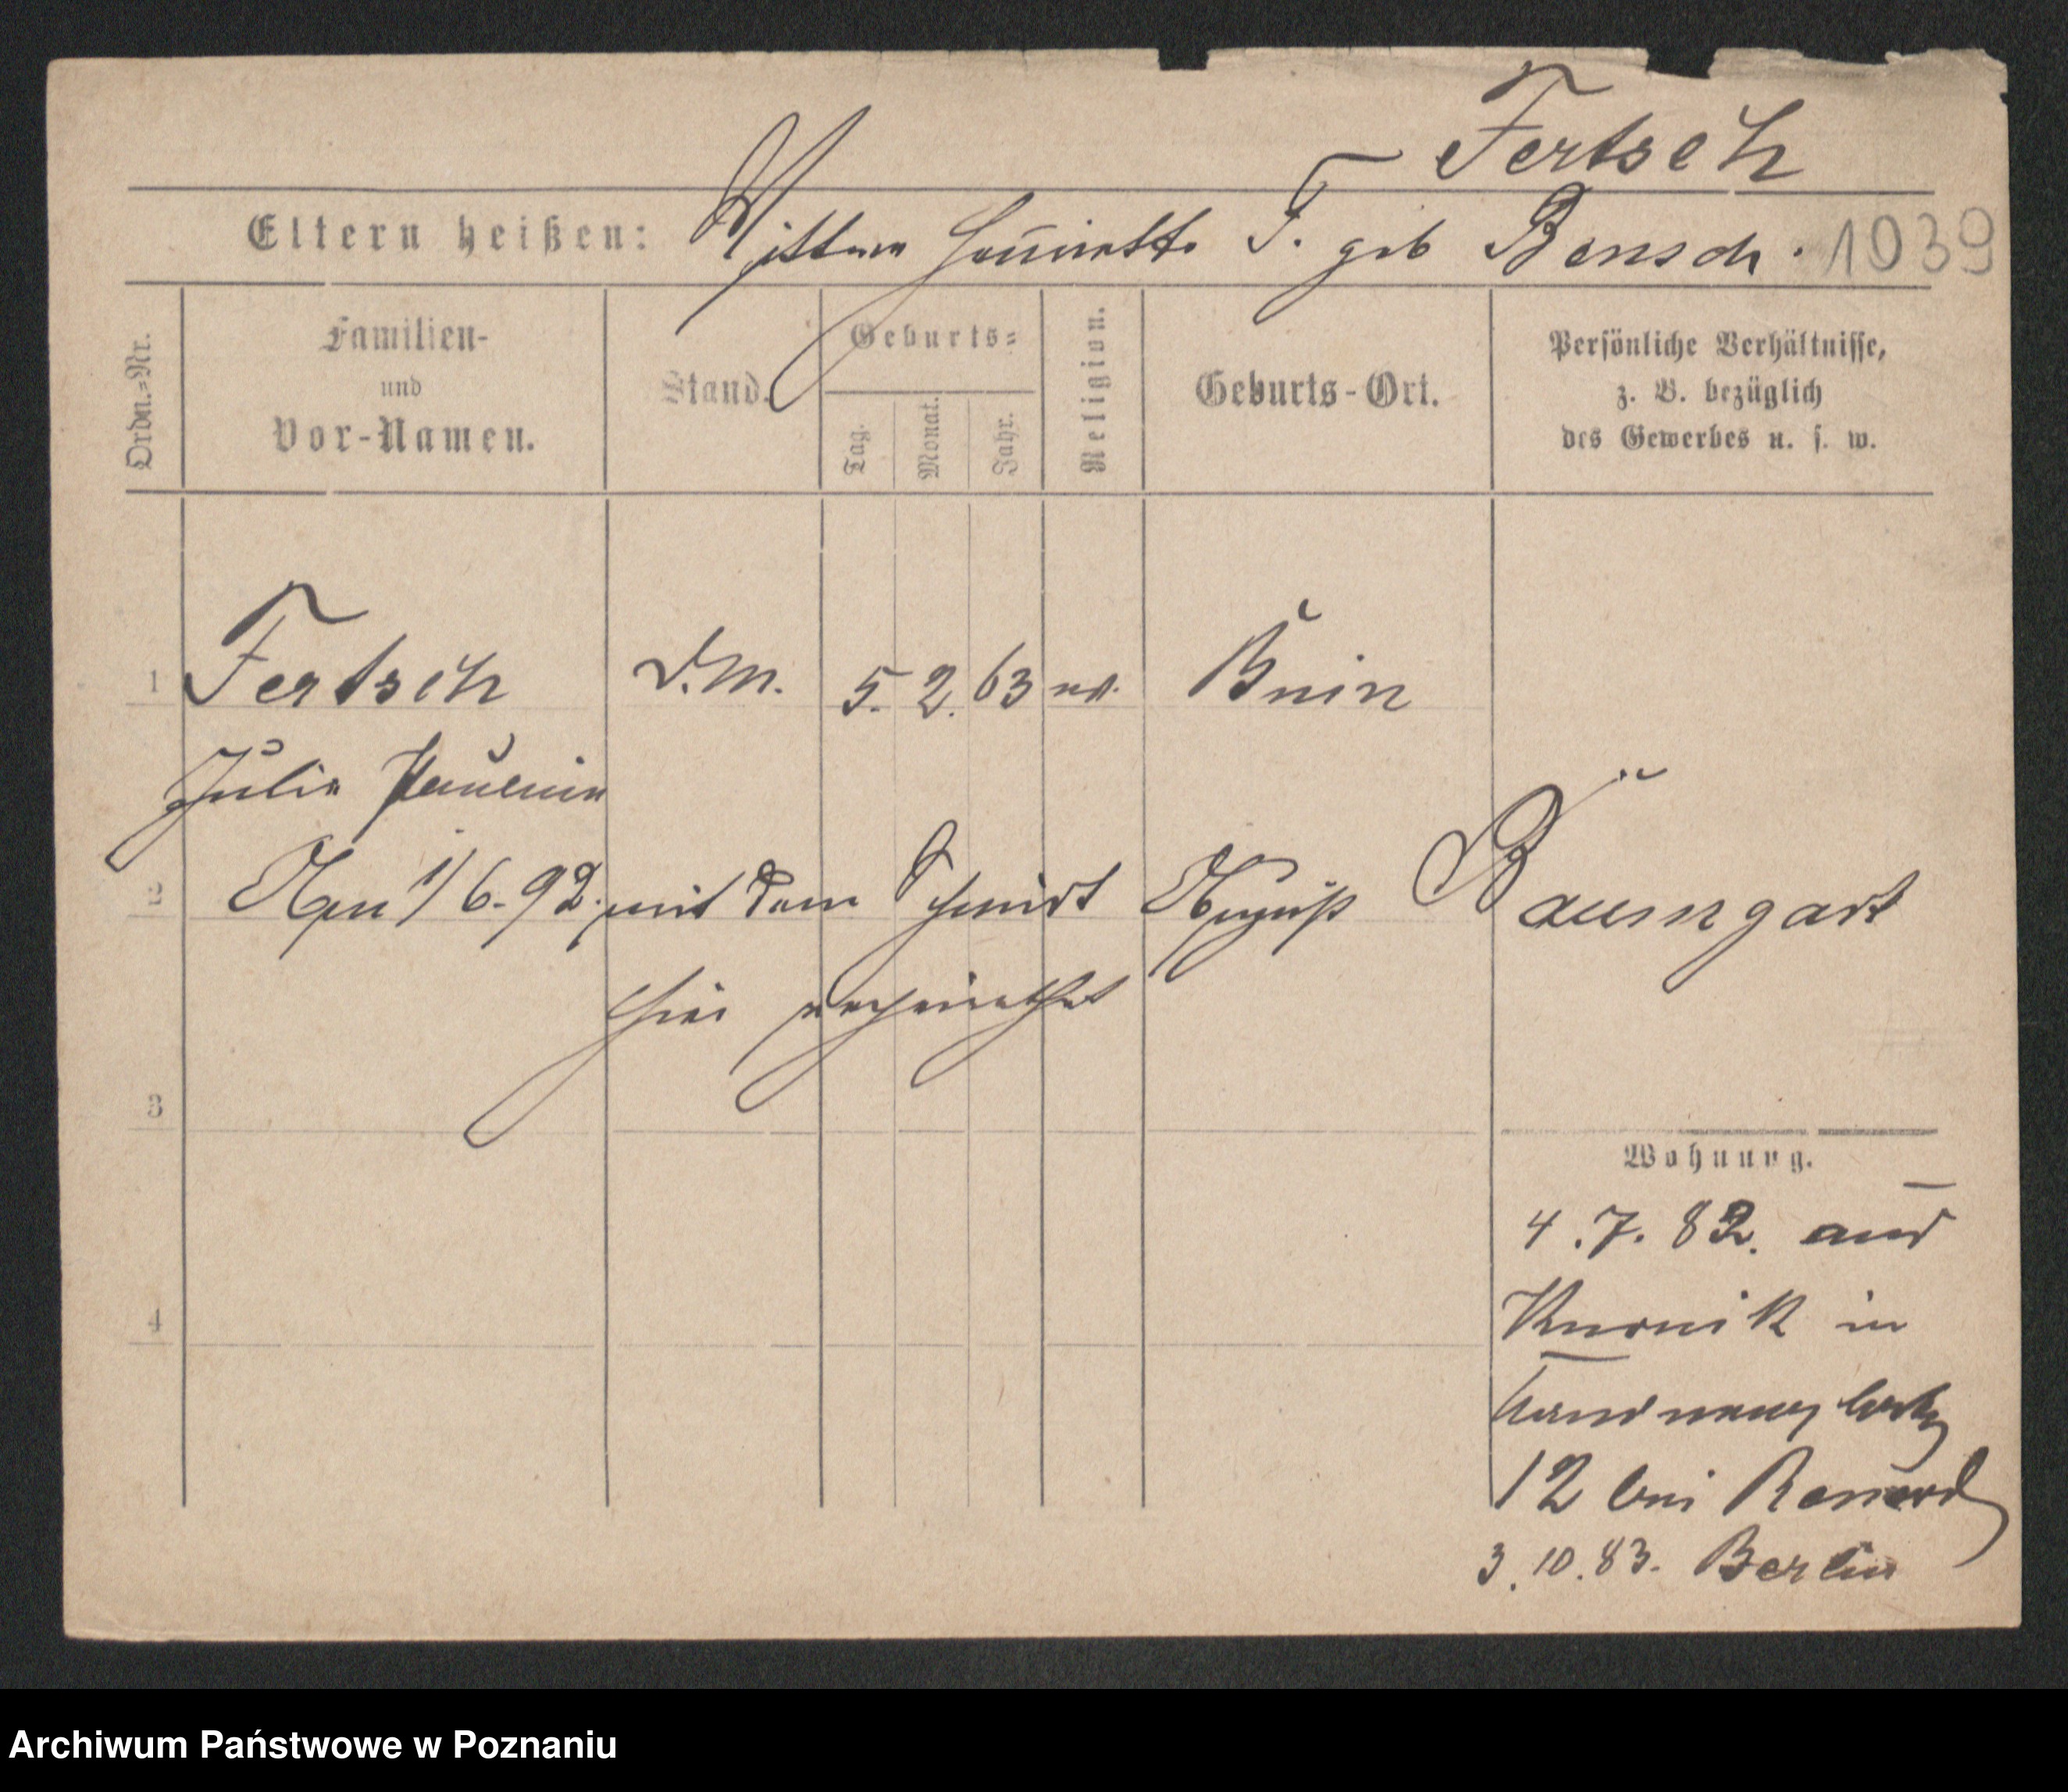 Fertsch
Eltern heißen: Wittwe Henriette F. geb Bensch. 1039
Ordn.=Nr.
Familien-
und
Vor-Namen.
Stand.
Geburts=
Tag.
Monat.
Jahr.
Religion.
Geburts-Ort.
Persönliche Verhältnisse,
z. B. bezüglich
des Gewerbes u. s. w.
1 Fertsch D.M. 5. 2. 63 ev. Bnin
Julie Pauline
2 Am 1/6.92. mit dem Schmidt August Baumgart
hier verheirathet
3
Wohnung.
4.7.82. aus
Kurnik in
4
12 bei
3.10.83. Berlin
Archiwum Państwowe w Poznaniu